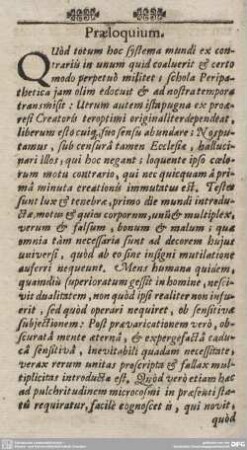 Præloquium.
QUòd totum hoc systema mundi ex con-
trariis in unum quid coaluerit & certo
modo perpetuò militet; schola Peripa-
thetica jam olim edocuit & ad nostra tempora
transmisit: Utrum autem ista pugna ex proæ-
resi Creatoris ter optimi originaliter dependeat,
liberum esto cuiq; suo sensu abundare: Nos pu-
tamus, sub censurâ tamen Ecclesiæ, hallu-
cinari illos, qui hoc negant; loquente ipso cælo-
rum motu contrario, qui nec quicquam à pri-
mâ minuta creationis immutatus est. Testes
sunt lux & tenebræ, primo die mundi introdu-
ctæ, motus & quies corporum, unũ & multiplex,
verum & falsum, bonum & malum: quæ
omnia tàm necessaria sunt ad decorem hujus
universi, quòd ab eo sine insigni mutilatione
auferri nequeunt. Mens humana quidem,
quamdiù superioratum gessit in homine, nesci-
vit dualitatem, non quòd ipsi realiter non infu-
erit, sed quòd operari nequiret, ob sensitivæ
subjectionem: Post prævaricationem verò, ob-
scuratâ mente æternâ, & expergefactâ cadu-
câ sensitivâ, inevitabili quadam necessitate,
verax rerum unitas proscripta & fallax mul-
tiplicitas introducta est. Quòd verò etiam hæc
ad pulchritudinem microcosmi in præsenti sta-
tu requiratur, facilè cognoscet is, qui novit,
quòd